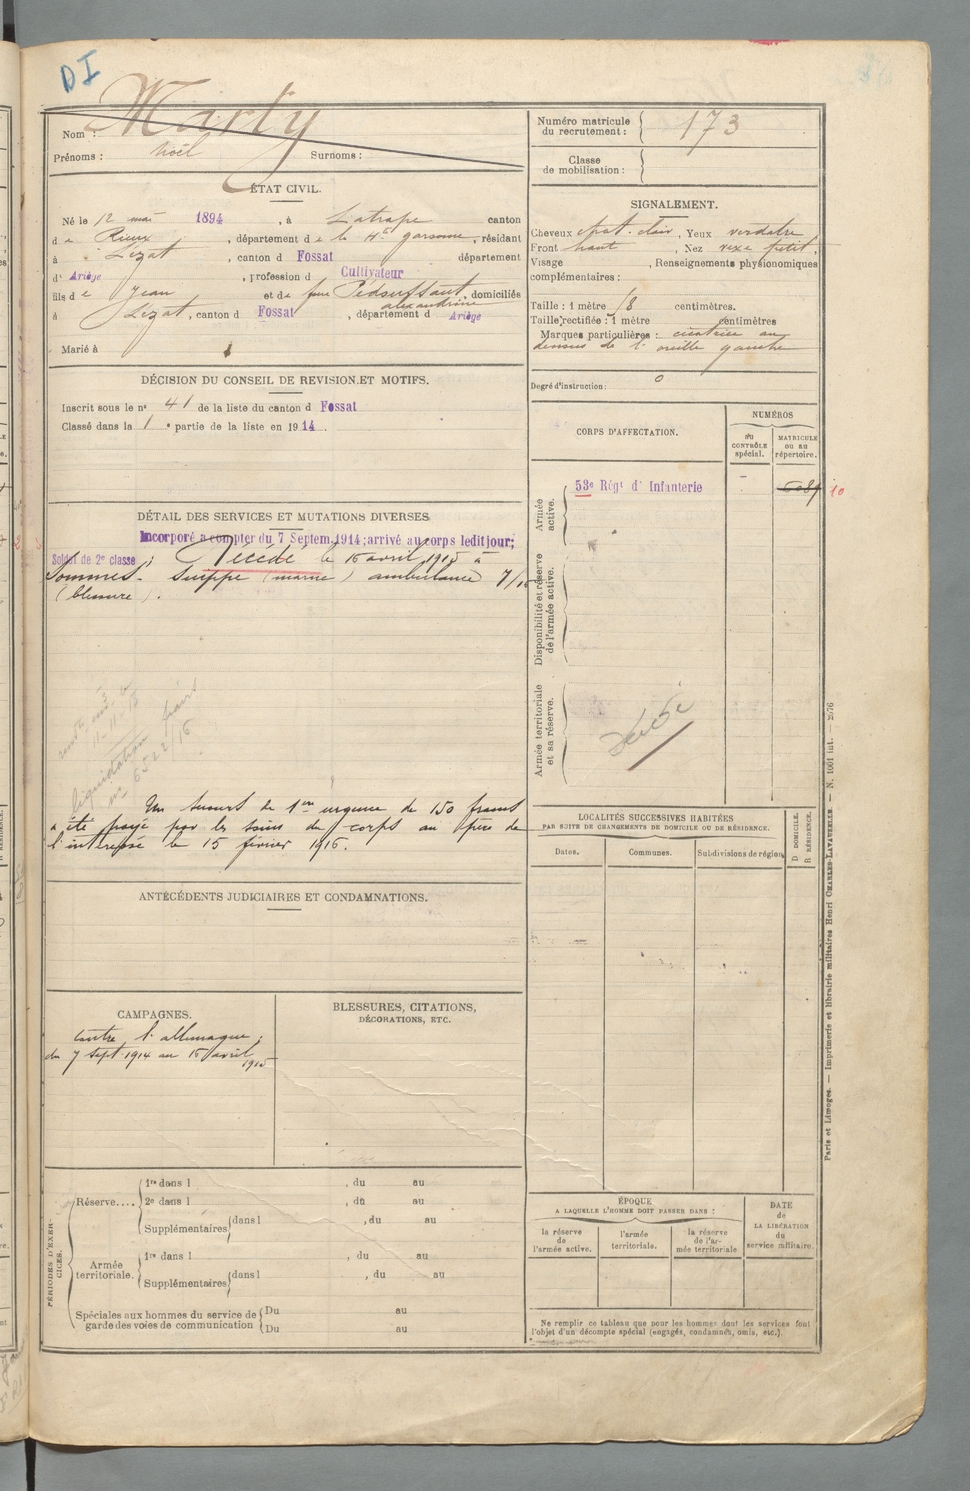 DI
Nom : Marty
Prénoms : Noël Surnoms :
Numéro matricule du recrutement : 173
Classe de mobilisation :
ÉTAT CIVIL.
Né le 12 mai 1894, à Latrape canton
de Rieux, département de la Hte garonne, résidant
à Lézat, canton d Fossat département
d' Ariège, profession d Cultivateur
fils de Jean et de feue Pédoussaut, domiciliés
alexandrine
à Lézat, canton d Fossat, département d Ariège
Marié à
SIGNALEMENT.
Cheveux chat. clair, Yeux verdatre
Front haut, Nez vexe petit,
Visage , Renseignements physionomiques
complémentaires :
Taille : 1 mètre 78 centimètres.
Taille rectifiée : 1 mètre centimètres
Marques particulières : cicatrice au
dessus de l'oreille gauche
Degré d'instruction : 0
DÉCISION DU CONSEIL DE REVISION ET MOTIFS.
Inscrit sous le n° 41 de la liste du canton d Fossat
Classé dans la 1e partie de la liste en 1914.
CORPS D'AFFECTATION.
NUMÉROS
au CONTRÔLE spécial.
MATRICULE ou au répertoire.
Armée active.
53e Régt d' Infanterie
10
Disponibilité et réserve de l'armée active.
Armée territoriale et sa réserve.
DÉTAIL DES SERVICES ET MUTATIONS DIVERSES
Incorporé à compter du 7 Septem. 1914; arrivé au corps ledit jour;
Soldat de 2e classe; Décédé le 15 avril 1915 à
Somme. Suippe (marne) ambulance 7/16
(blessure).
liquidation frais
n° 6522/16
Un secours de 1ere urgence de 150 francs
a été payé par les soins du corps au père de
l'intéressé le 15 février 1916.
LOCALITÉS SUCCESSIVES HABITÉES
PAR SUITE DE CHANGEMENTS DE DOMICILE OU DE RÉSIDENCE.
Dates. Communes. Subdivisions de région
D DOMICILE.
R RÉSIDENCE.
ANTÉCÉDENTS JUDICIAIRES ET CONDAMNATIONS.
CAMPAGNES.
Contre l'allemagne;
du 7 sept. 1914 au 15 avril
1915
BLESSURES, CITATIONS,
DÉCORATIONS, ETC.
PÉRIODES D'EXERCICES.
Réserve....
1re dans l , du au
2e dans l , du au
Supplémentaires dans l , du au
Armée territoriale.
1re dans l , du au
Supplémentaires dans l , du au
Spéciales aux hommes du service de
garde des voies de communication
Du au
Du au
ÉPOQUE
A LAQUELLE L'HOMME DOIT PASSER DANS :
la réserve de l'armée active.
l'armée territoriale.
la réserve de l'armée territoriale
DATE de LA LIBÉRATION du service militaire.
Ne remplir ce tableau que pour les hommes dont les services font
l'objet d'un décompte spécial (engagés, condamnés, omis, etc.).
Paris et Limoges. — Imprimerie et librairie militaires Henri CHARLES-LAVAUZELLE — N. 1001 int. — 2576